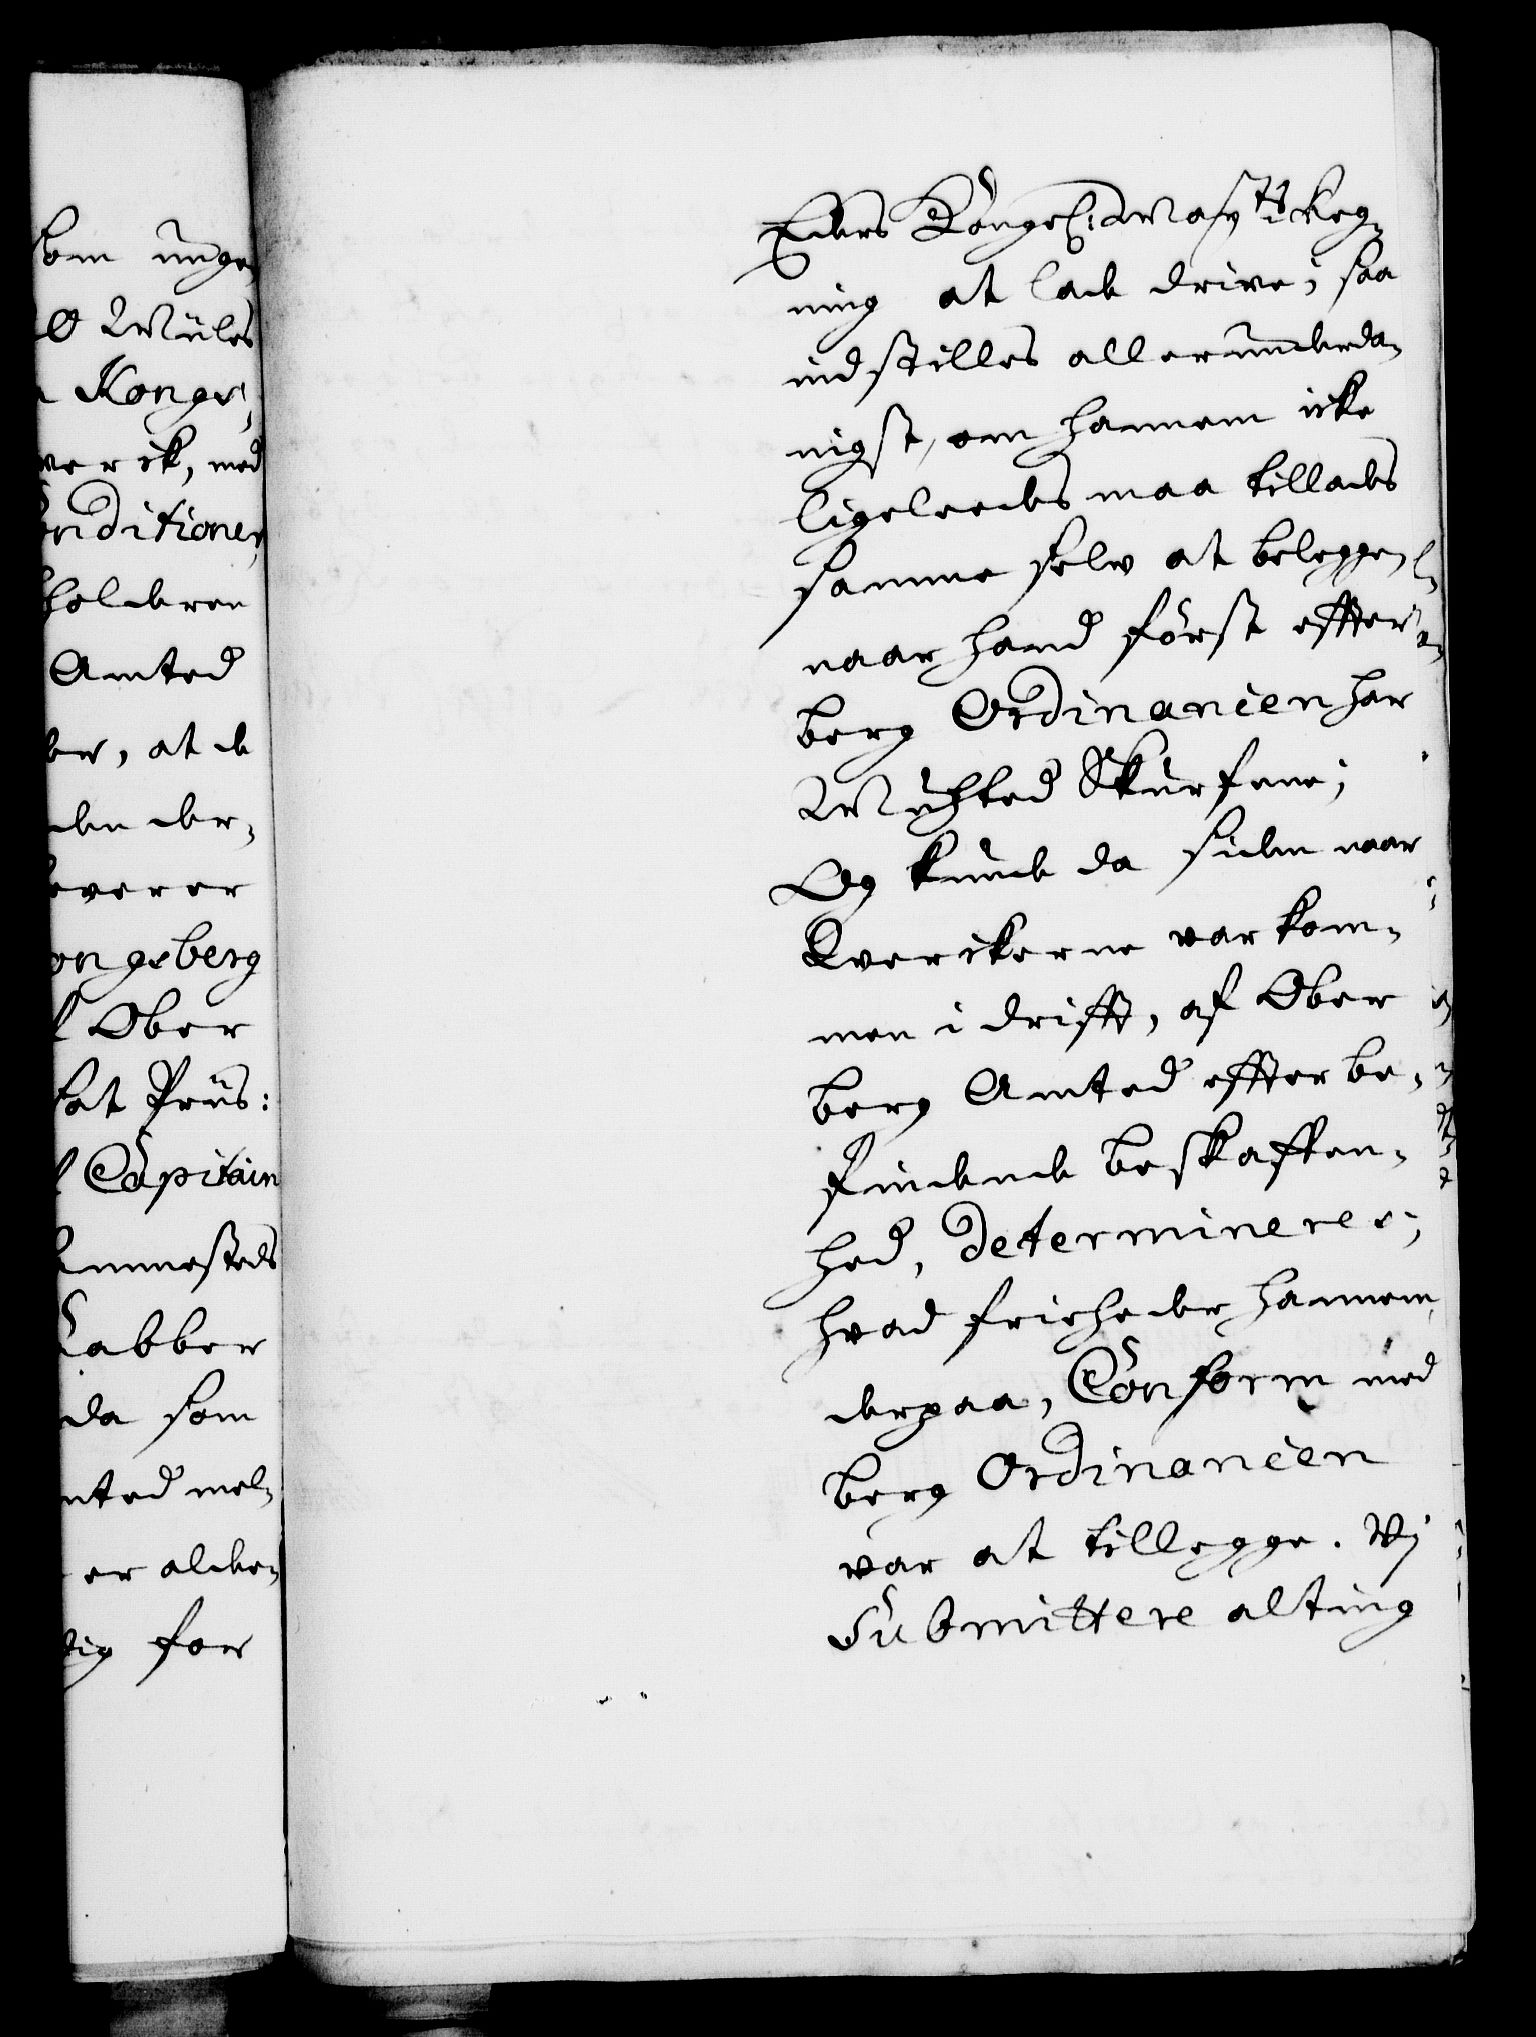 som unge,
Ø Wüles
Kongs,
verck, med
onditioner,
holderen
Amted
er, at de
den der,
leverer
ongsberg
Ober
sat Priis:
Capitain
ammesteds
Kabber
da som
mted mel,
er alde,
tig for
Eders Kongel: Mayts Reg,
ning at lade drive; saa
indstilles allerunderda,
nigst, om hannem icke
ligeleedes maa tillades
samme selv at belegge,
naar hand först effter
berg Ordinancen har
Muhted Skürfene;
Og kunde da siden naar
Qverckerne var kom,
men i drifft, af Ober
berg Amted effter be,
findende beskaffen,
hed, determineres;
hvad friheder hannem
derpaa, Conform med
berg Ordinancen
var at tillegge. Vj
Submittere alting